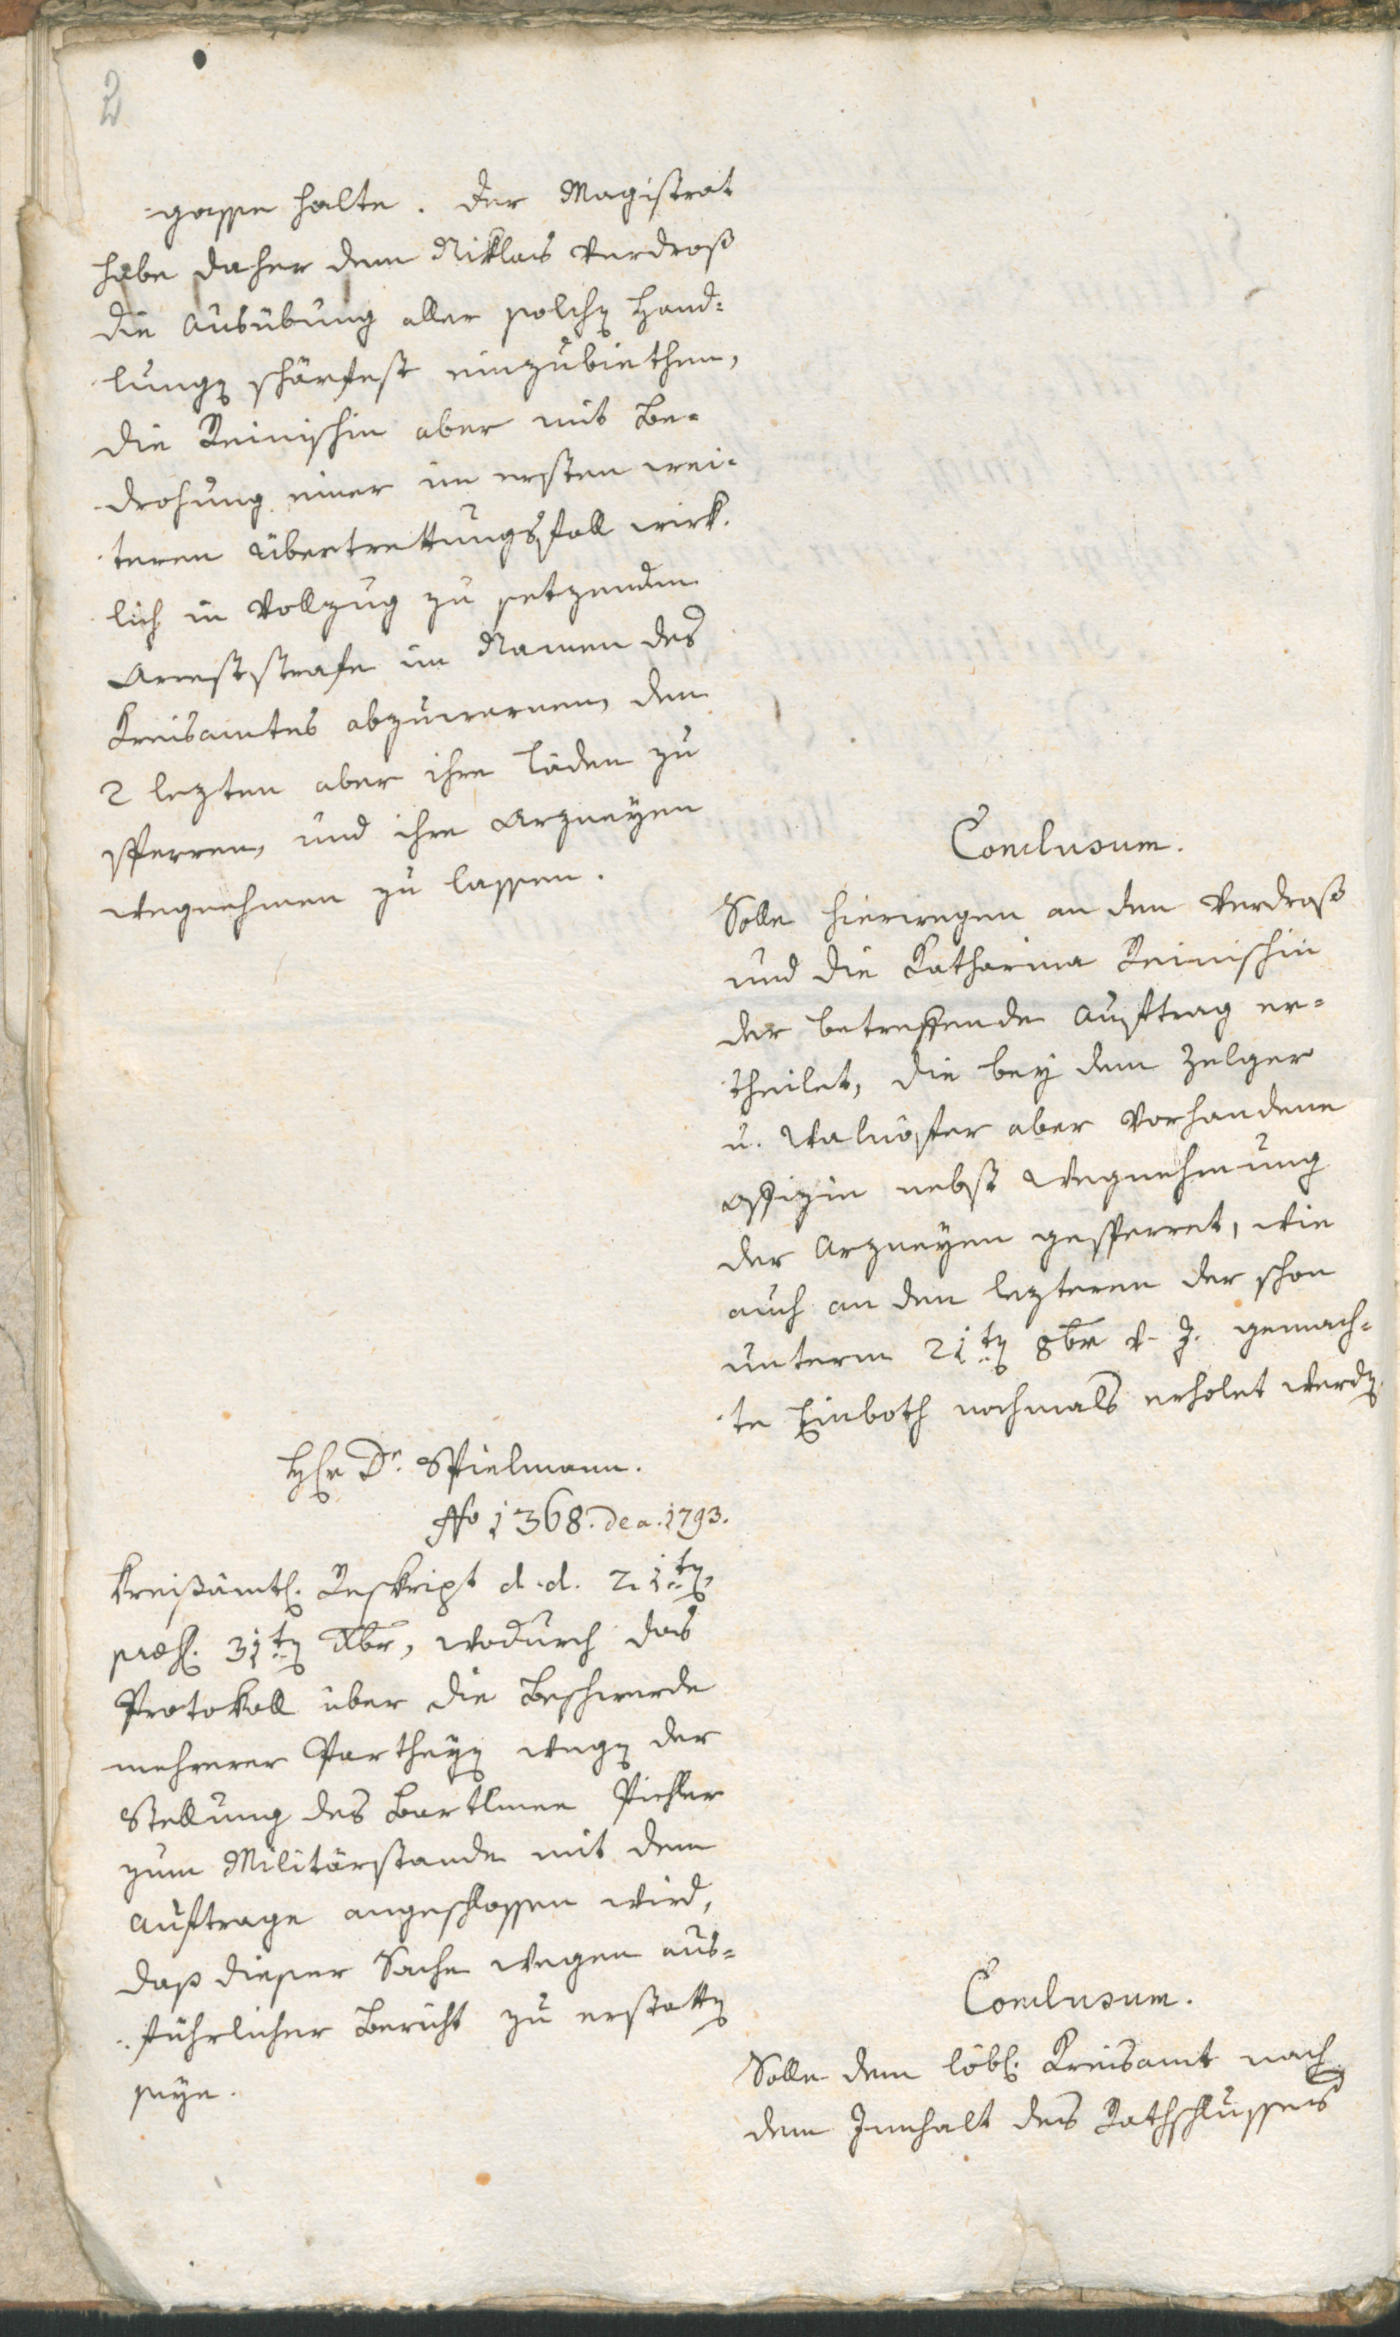 2
gasse halte. Der Magistrat
habe daher dem Niklas Verdroß
die Ausübung aller solchen Hand-
lungen schärfest einzubiethen,
die Reinischin aber mit Be-
drohung einer im ersten wei-
teren Übertrettungsfall wirk-
lich in Vollzug zu setzenden
Arreststrafe im Namen des
Kreisamtes abzuwarnen, den
2 lezten aber ihre Läden zu
sperren, und ihre Arzneyen
wegnehmen zu lassen.
Conclusum.
Solle hierwegen an den Verdroß
und die Katharina Reinischin
der betreffende Auftrag er-
theilet, die bey dem Zelger
u. Walnöfer aber vorhandene
Offizin nebst Wegnehmung
der Arzneyen gesperret, wie
auch an den lezteren der schon
unterm 21ten 8br v. J. gemach-
te Einboth nochmals erholet werden.
Herr Dr. Spielmann.
No 1368. de a. 1793.
Kreißämtl. Reskript d.d. 21ten,
præs. 31ten Xbr, wodurch das
Protokoll über die Beschwerde
mehrerer Partheyen wegen der
Stellung des Bartlmee Pichler
zum Militärstande mit dem
Auftrage angeschlossen wird,
daß dieser Sache wegen aus-
führlicher Bericht zu erstatten
seye.
Conclusum.
Solle dem löbl. Kreisamt nach
dem Innhalt des Rathschlusses